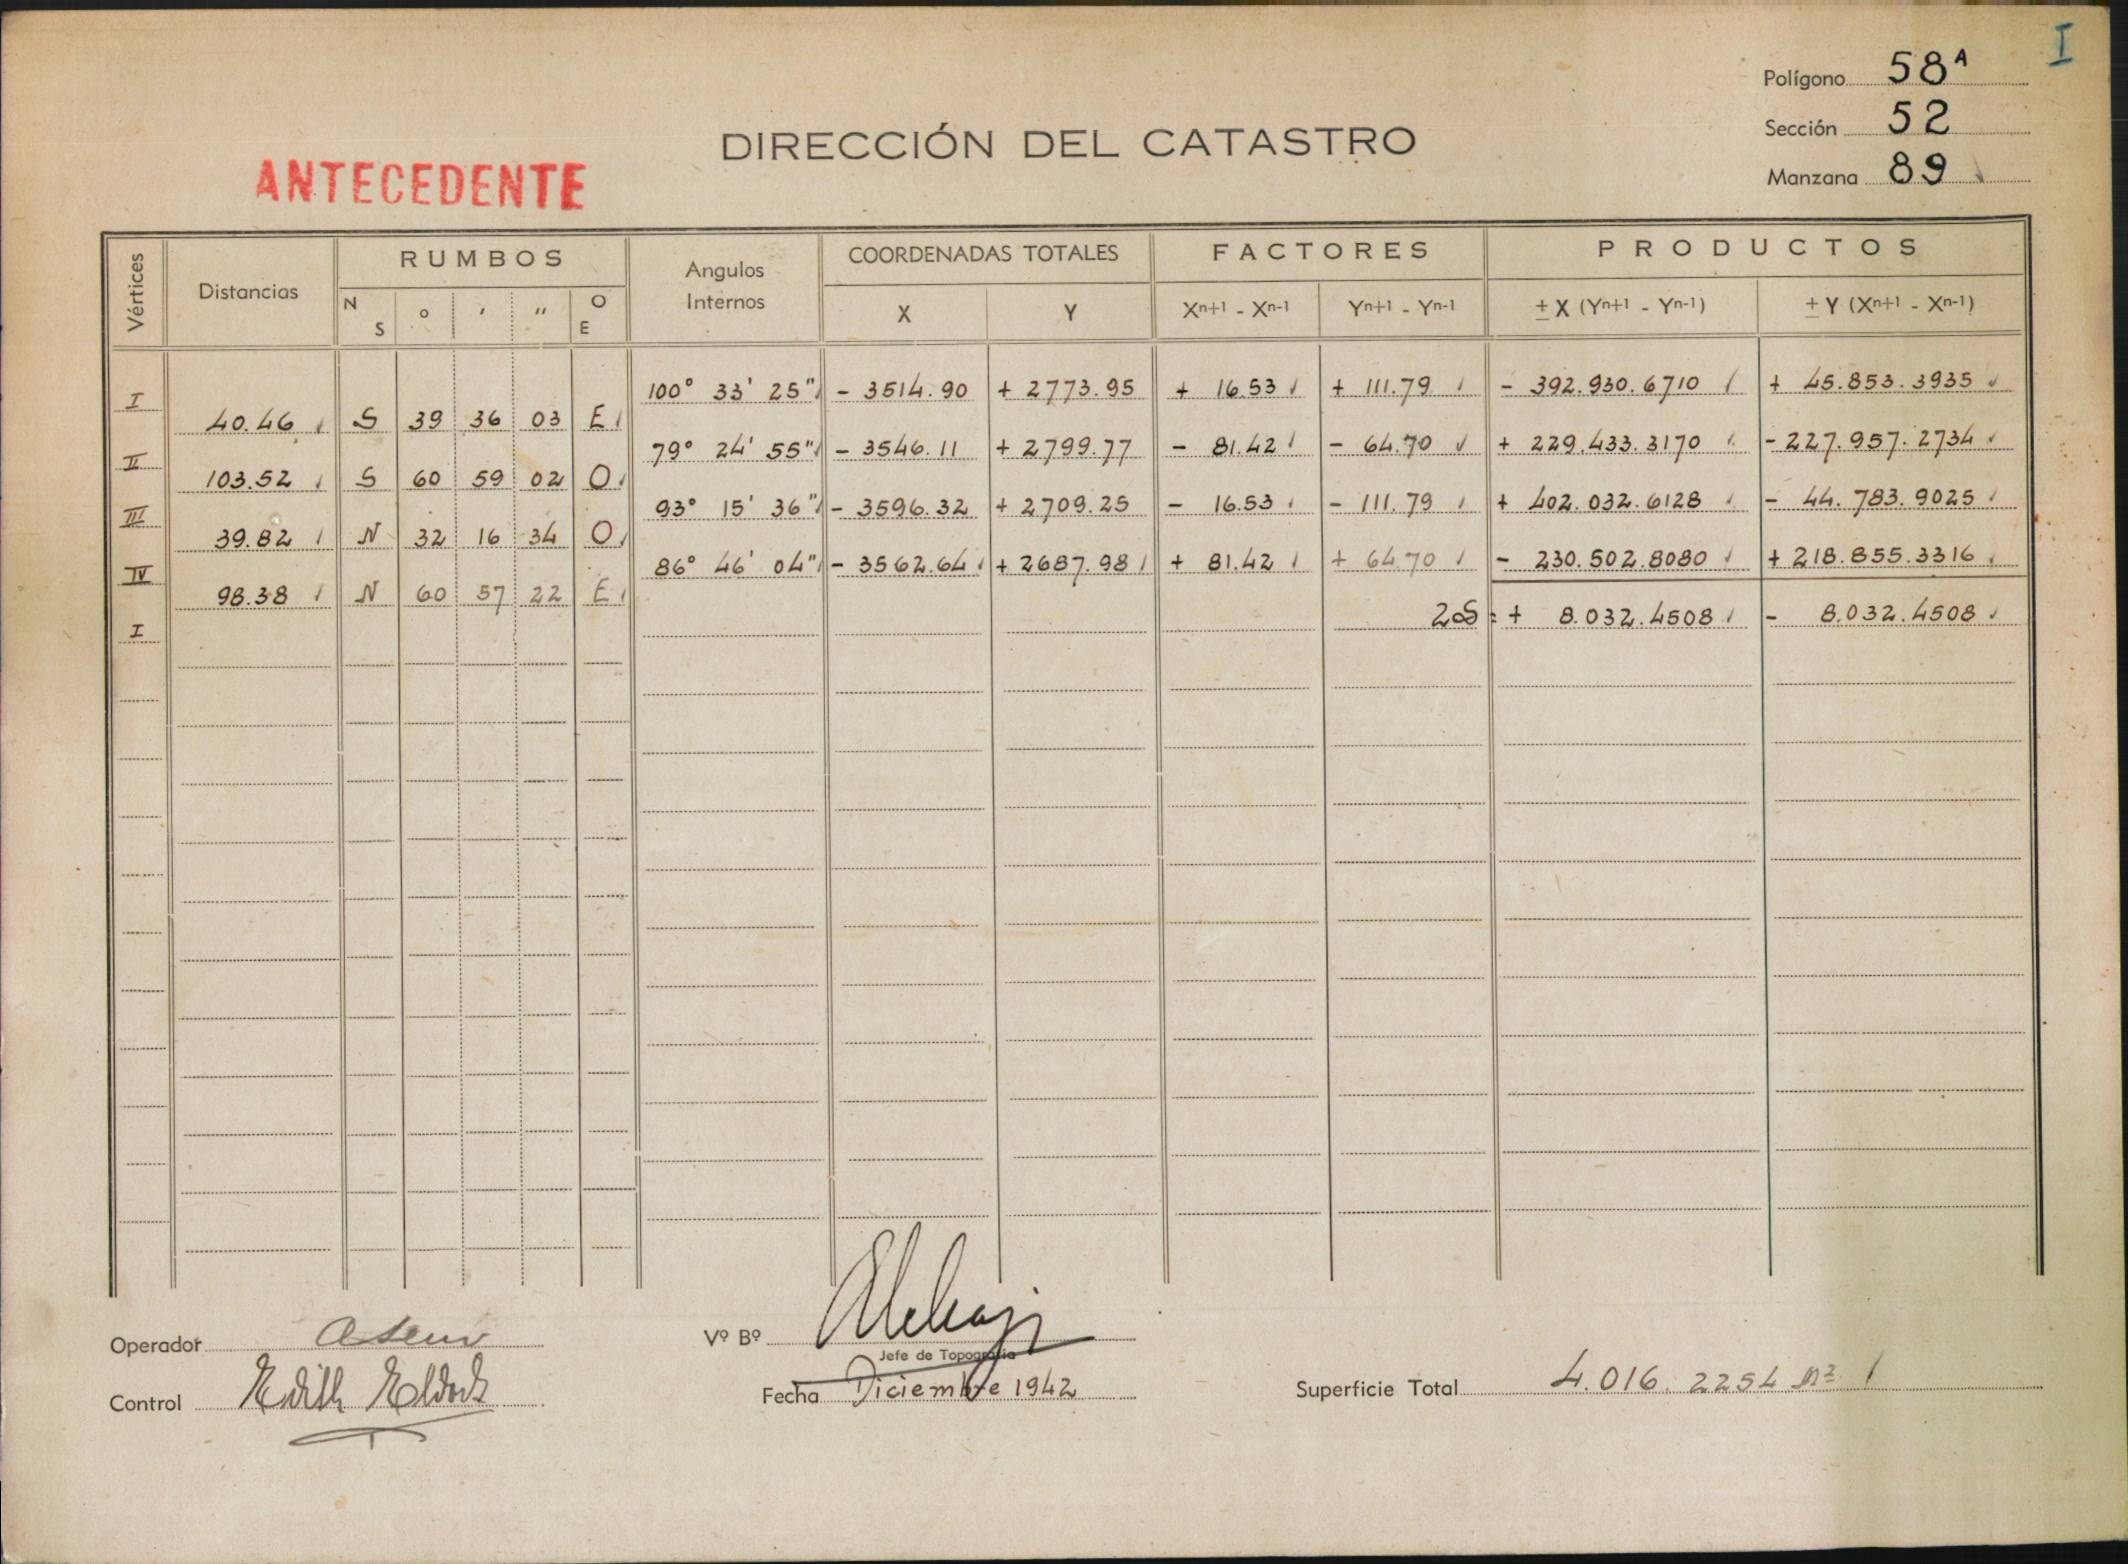 I
Polígono 58A
Sección 52
Manzana 89
DIRECCIÓN DEL CATASTRO
ANTECEDENTE
Vértices Distancias RUMBOS Angulos Internos COORDENADAS TOTALES FACTORES PRODUCTOS
N S ° ' " O E X Y Xn+1 - Xn-1 Yn+1 - Yn-1 ± X (Yn+1 - Yn-1) ± Y (Xn+1 - Xn-1)
I 100° 33' 25" - 3514.90 + 2773.95 + 16.53 + 111.79 - 392.930.6710 + 45.853.3935
40.46 S 39 36 03 E
II 79° 24' 55" - 3546.11 + 2799.77 - 81.42 - 64.70 + 229.433.3170 - 227.957.2734
103.52 S 60 59 02 O
III 93° 15' 36" - 3596.32 + 2709.25 - 16.53 - 111.79 + 402.032.6128 - 44.783.9025
39.82 N 32 16 34 O
IV 86° 46' 04" - 3562.64 + 2687.98 + 81.42 + 64.70 - 230.502.8080 + 218.855.3316
98.38 N 60 57 22 E
I 2S = + 8.032.4508 - 8.032.4508
Operador
Vº Bº
Jefe de Topografía
Control Edith
Fecha Diciembre 1942
Superficie Total 4.016.2254 m2